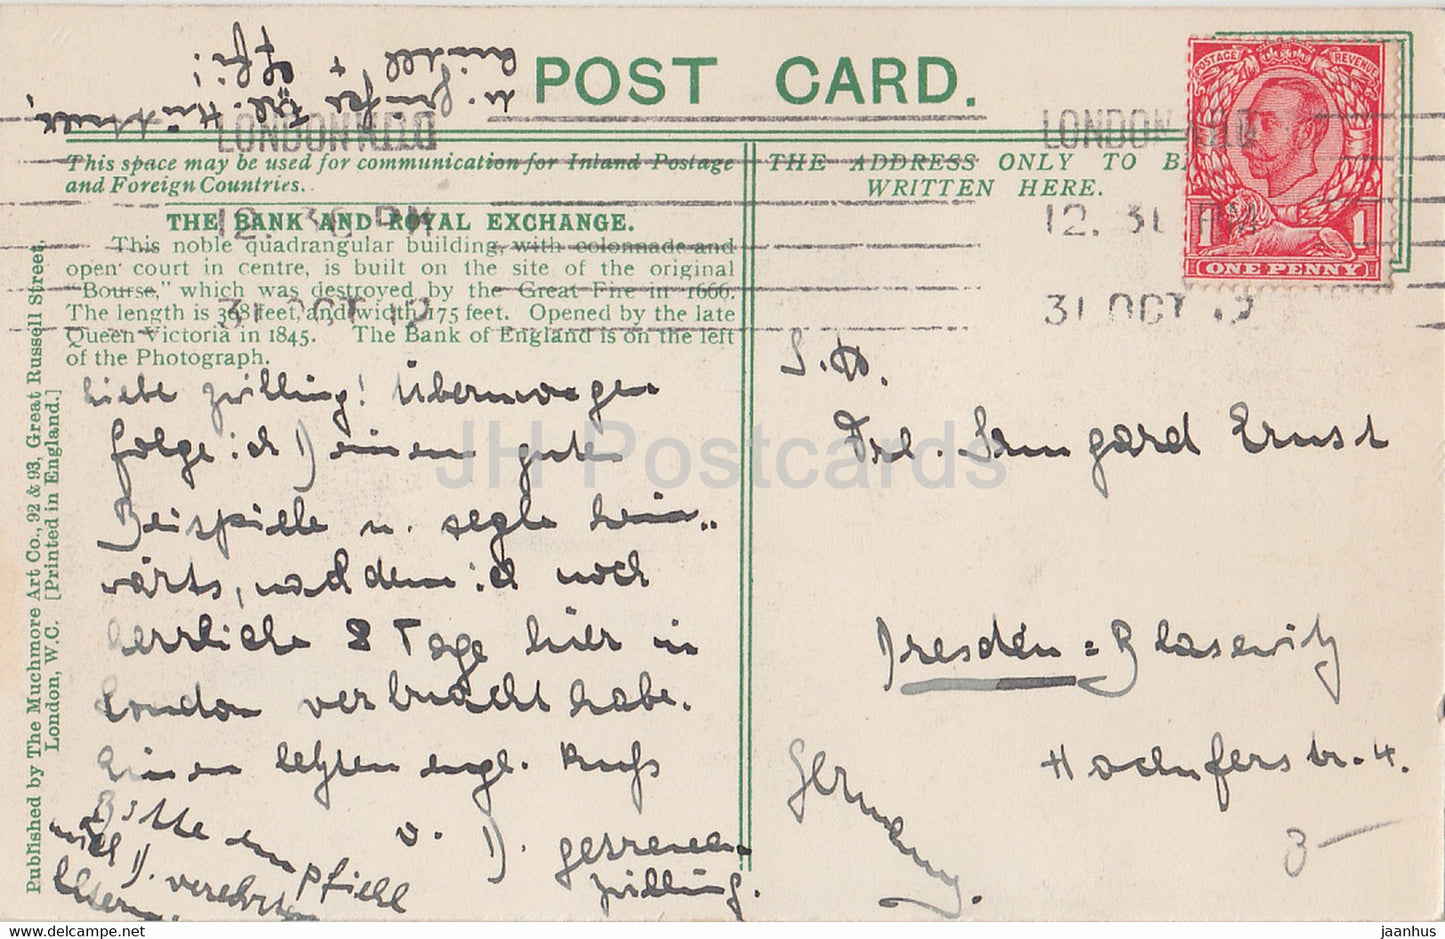 POST CARD.
POSTAGE REVENUE
1 1
ONE PENNY
LONDON W.D.O
12. 30 PM
31 OCT 12
LONDON
12. 30 PM
31 OCT 12
This space may be used for communication for Inland Postage
and Foreign Countries.
THE ADDRESS ONLY TO BE
WRITTEN HERE.
THE BANK AND ROYAL EXCHANGE.
This noble quadrangular building, with colonnade and
open court in centre, is built on the site of the original
"Bourse," which was destroyed by the Great Fire in 1666.
The length is 308 feet, and width 175 feet. Opened by the late
Queen Victoria in 1845. The Bank of England is on the left
of the Photograph.
Published by The Muchmore Art Co., 92 & 93, Great Russell Street,
London, W.C. [Printed in England.]
Liebe Zwilling! Überm
folge ich D einen guten
Beispiele u. segle heim-
wärts, nachdem ich noch
herrliche 8 Tage hier in
London verbracht habe.
Einen letzten engl. Kuss
v. D. getreuen
Zwilling.
Bitte empfiehl
mich D. verehrten
Eltern,
Frl.
+
Effi!
Frl. Irmgard Ernst
Dresden=Blasewitz
Hochuferstr. 4.
Germany.
3-
JH Postcards
hippostcard.com
jaanhus